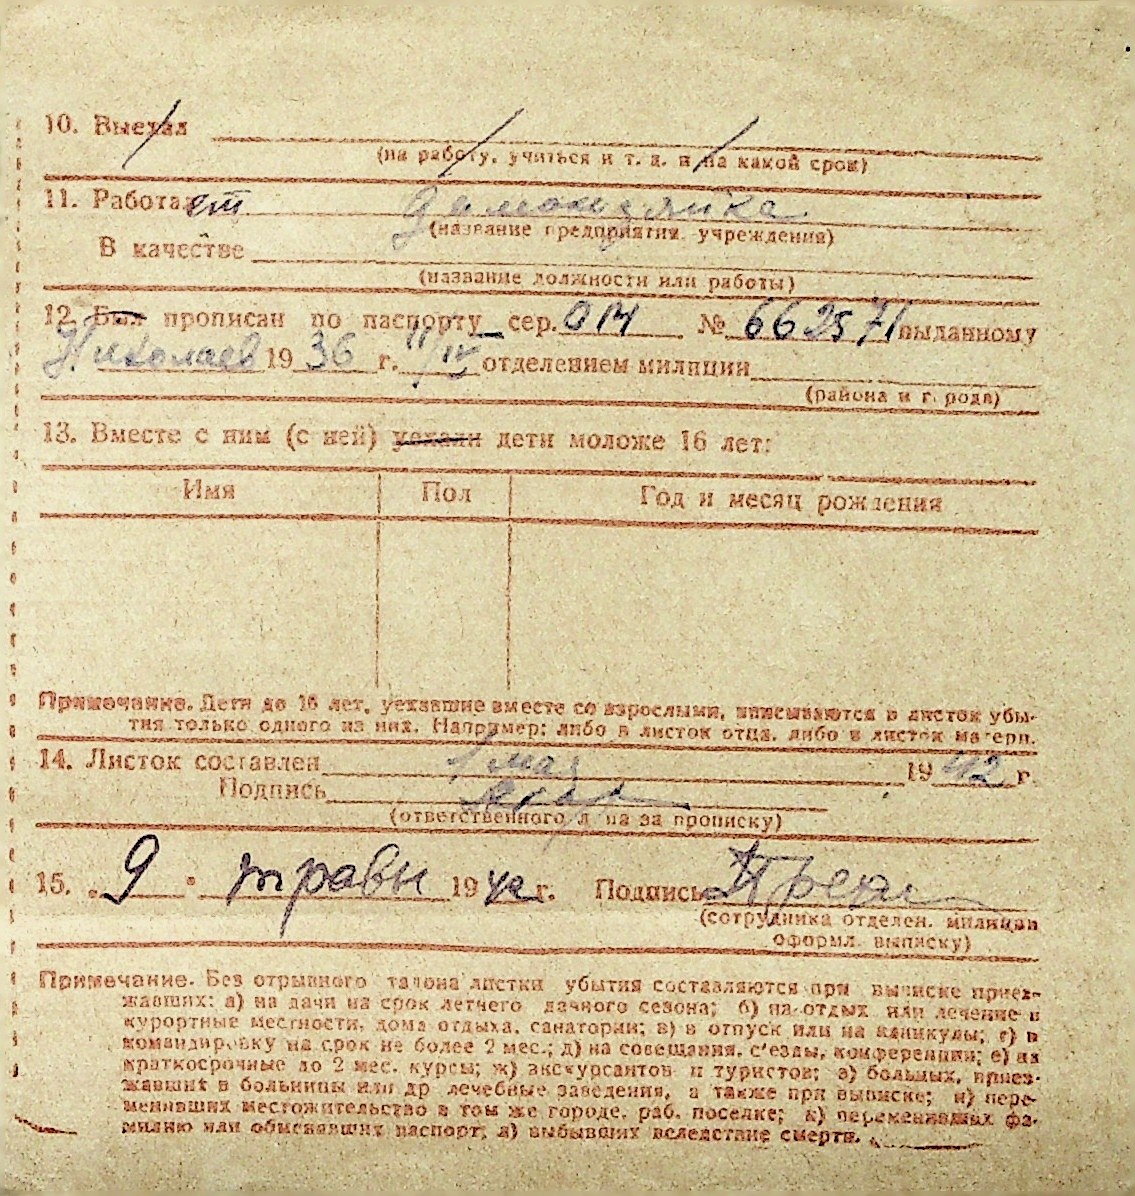 10. Выехал
(на работу, учиться и т. д. и на какой срок)
11. Работает домохозяйка
(название предприятия, учреждения)
В качестве
(название должности или работы)
12. Был прописан по паспорту сер. 014 № 662571 выданному
Николаев 1936 г. 11/IV отделением милиции
(района и города)
13. Вместе с ним (с ней) уехали дети моложе 16 лет:
Имя Пол Год и месяц рождения
Примечание. Дети до 16 лет, уехавшие вместе со взрослыми, вписываются в листок убы-
тия только одного из них. Например: либо в листок отца, либо в листок матери.
14. Листок составлен 1 мая 1942 г.
Подпись
(ответственного лица за прописку)
15. „9" травн 1942 г. Подпись
(сотрудника отделен. милиции
оформл. выписку)
Примечание. Без отрывного талона листки убытия составляются при выписке приез-
жавших: а) на дачи на срок летнего дачного сезона; б) на отдых или лечение в
курортные местности, дома отдыха, санатории; в) в отпуск или на каникулы; г) в
командировку на срок не более 2 мес.; д) на совещания, с'езды, конференции; е) на
краткосрочные до 2 мес. курсы; ж) экскурсантов и туристов; з) больных, приез-
жавших в больницы или др лечебные заведения, а также при выписке; и) пере-
менивших местожительство в том же городе, раб. поселке; к) переменивших фа-
милию или обменявших паспорт; л) выбывших вследствие смерти.